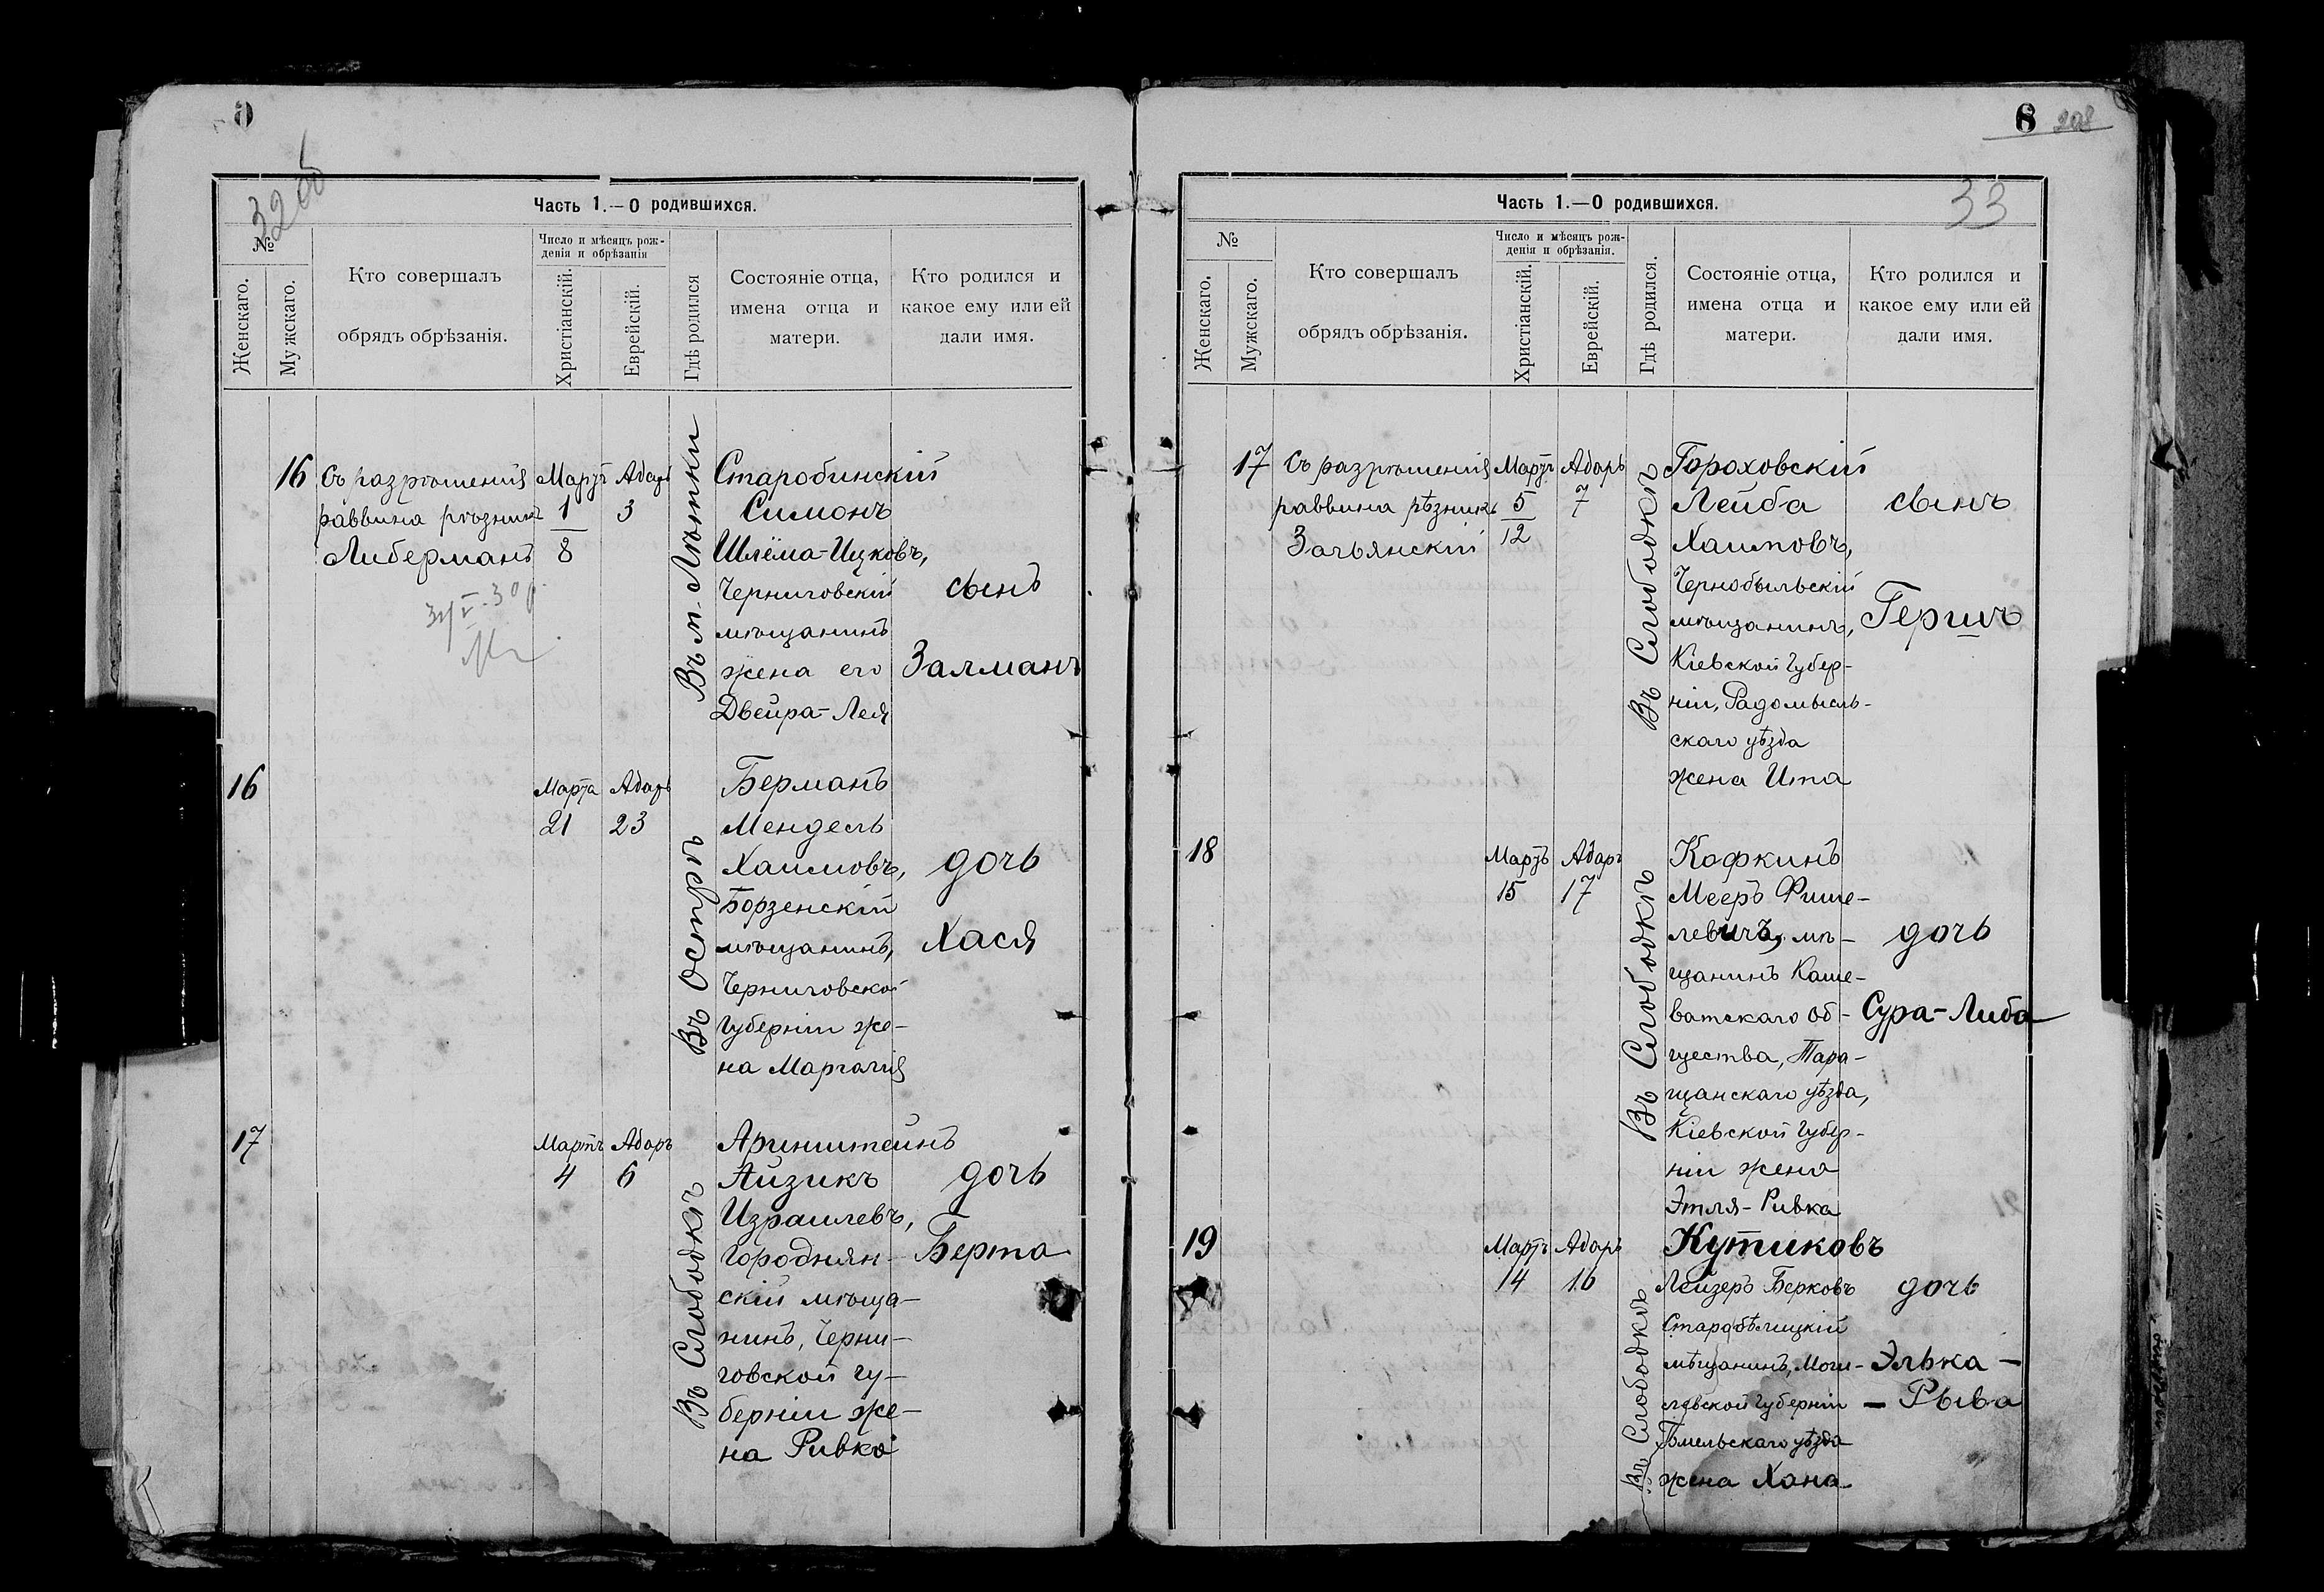 32 об
Часть 1.—О родившихся.
№
Женскаго.
Мужскаго.
Кто совершалъ
обрядъ обрѣзанія.
Число и мѣсяцъ рож-
денія и обрѣзанія
Христіанскій.
Еврейскій.
Гдѣ родился
Состояніе отца,
имена отца и
матери.
Кто родился и
какое ему или ей
дали имя.
16
Съ разрѣшенія
раввина рѣзникъ
Либерманъ
Мартъ
1
8
Адаръ
3
Въ м. Лѣтки
Старобинскій
Симонъ
Шлёма-Ицковъ,
Черниговскій
мѣщанинъ
жена его
Двейра-Лея
сынъ
Залманъ
16
Марта
21
Адаръ
23
Въ Острѣ
Берманъ
Мендель
Хаимовъ,
Борзенскій
мѣщанинъ,
Черниговской
Губерніи же-
на Маргалія
дочь
Хася
17
Мартъ
4
Адаръ
6
Въ Слободкѣ
Аринштейнъ
Айзикъ
Израилевъ,
Городнян-
скій мѣща-
нинъ, Черни-
говской гу-
берніи же-
на Ривка
дочь
Берта
8 208
33
Часть 1.—О родившихся.
№
Женскаго.
Мужскаго.
Кто совершалъ
обрядъ обрѣзанія.
Число и мѣсяцъ рож-
денія и обрѣзанія.
Христіанскій.
Еврейскій.
Гдѣ родился.
Состояніе отца,
имена отца и
матери.
Кто родился и
какое ему или ей
дали имя.
17
Съ разрѣшенія
раввина рѣзникъ
Мартъ
5
12
Адаръ
7
Въ Слободкѣ
Гороховскій
Лейба
Хаимовъ,
Чернобыльскій
мѣщанинъ,
Кіевской Губер-
ніи, Радомысль-
скаго уѣзда
жена Ита
сынъ
Гершъ
18
Мартъ
15
Адаръ
17
Въ Слободкѣ
Кофкинъ
Мееръ Фише-
левичъ, мѣ-
щанинъ Каше-
ватскаго об-
щества, Тара-
щанскаго уѣзда,
Кіевской Губер-
ніи жена
Этля-Ривка
дочь
Сура-Либа
19
Мартъ
14
Адаръ
16
Въ Слободкѣ
Кутиковъ
Лейзеръ Берковъ
Старобѣлицкій
мѣщанинъ, Моги-
левской Губерніи
Гомельскаго уѣзда
жена Хана
дочь
Элька-
- Рыва